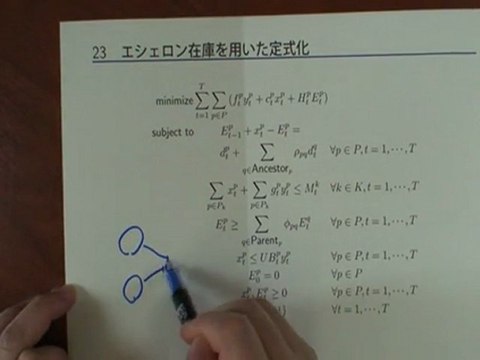 23 エシェロン在庫を用いた定式化
minimize ∑_{t=1}^{T} ∑_{p∈P} (f_t^p y_t^p + c_t^p x_t^p + H_t^p E_t^p)
subject to E_{t-1}^p + x_t^p − E_t^p =
d_t^p + ∑_{q∈Ancestor_p} ρ_{pq} d_t^q ∀p ∈ P, t = 1, ···, T
∑_{p∈P_k} x_t^p + ∑_{p∈P_k} g_t^p y_t^p ≤ M_t^k ∀k ∈ K, t = 1, ···, T
E_t^p ≥ ∑_{q∈Parent_p} φ_{pq} E_t^q ∀p ∈ P, t = 1, ···, T
x_t^p ≤ UB_t^p y_t^p ∀p ∈ P, t = 1, ···, T
E_0^p = 0 ∀p ∈ P
x_t^p, E_t^p ≥ 0 ∀p ∈ P, t = 1, ···, T
∀t = 1, ···, T